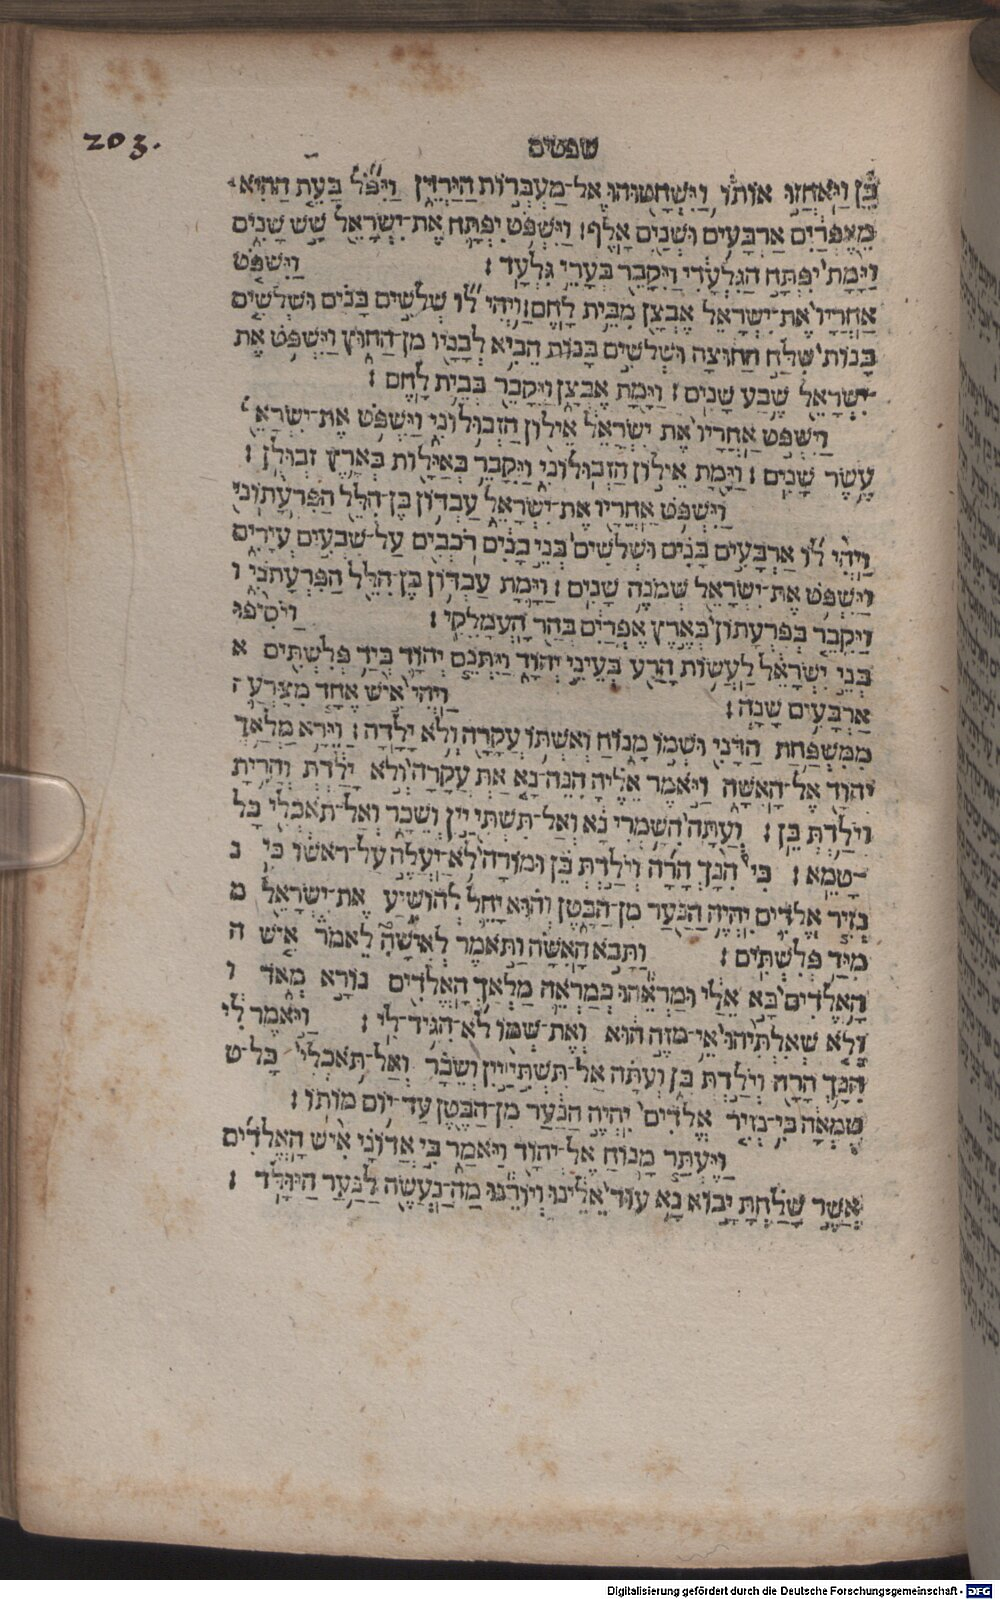 203.
שפטים
כֵּן וַיֹּאחֲזוּ אוֹתוֹ וַיִּשְׁחָטוּהוּ אֶל־מַעְבְּרוֹת הַיַּרְדֵּן וַיִּפֹּל בָּעֵת הַהִיא
מֵאֶפְרַיִם אַרְבָּעִים וּשְׁנַיִם אָלֶף׃ וַיִּשְׁפֹּט יִפְתָּח אֶת־יִשְׂרָאֵל שֵׁשׁ שָׁנִים
וַיָּמָת יִפְתָּח הַגִּלְעָדִי וַיִּקָּבֵר בְּעָרֵי גִלְעָד׃ וַיִּשְׁפֹּט
אַחֲרָיו אֶת־יִשְׂרָאֵל אִבְצָן מִבֵּית לָחֶם׃ וַיְהִי לוֹ שְׁלֹשִׁים בָּנִים וּשְׁלֹשִׁים
בָּנוֹת שִׁלַּח הַחוּצָה וּשְׁלֹשִׁים בָּנוֹת הֵבִיא לְבָנָיו מִן־הַחוּץ וַיִּשְׁפֹּט אֶת
־יִשְׂרָאֵל שֶׁבַע שָׁנִים׃ וַיָּמָת אִבְצָן וַיִּקָּבֵר בְּבֵית לָחֶם׃
וַיִּשְׁפֹּט אַחֲרָיו אֶת יִשְׂרָאֵל אֵילוֹן הַזְּבוּלוֹנִי וַיִּשְׁפֹּט אֶת־יִשְׂרָאֵ
עֶשֶׂר שָׁנִים׃ וַיָּמָת אֵילוֹן הַזְּבוּלוֹנִי וַיִּקָּבֵר בְּאַיָּלוֹת בְּאֶרֶץ זְבוּלֻן׃
וַיִּשְׁפֹּט אַחֲרָיו אֶת־יִשְׂרָאֵל עַבְדּוֹן בֶּן־הִלֵּל הַפִּרְעָתוֹנִי
וַיְהִי לוֹ אַרְבָּעִים בָּנִים וּשְׁלֹשִׁים בְּנֵי בָנִים רֹכְבִים עַל־שִׁבְעִים עֲיָרִים
וַיִּשְׁפֹּט אֶת־יִשְׂרָאֵל שְׁמֹנֶה שָׁנִים׃ וַיָּמָת עַבְדּוֹן בֶּן־הִלֵּל הַפִּרְעָתֹנִי ו
וַיִּקָּבֵר בְּפִרְעָתוֹן בְּאֶרֶץ אֶפְרַיִם בְּהַר הָעֲמָלֵקִי׃ וַיֹּסִיפוּ
בְּנֵי יִשְׂרָאֵל לַעֲשׂוֹת הָרַע בְּעֵינֵי יְהוָֹד וַיִּתְּנֵם יְהוָֹד בְּיַד פְּלִשְׁתִּים א
אַרְבָּעִים שָׁנָה׃ וַיְהִי אִישׁ אֶחָד מִצָּרְעָ ה
מִמִּשְׁפַּחַת הַדָּנִי וּשְׁמוֹ מָנוֹחַ וְאִשְׁתּוֹ עֲקָרָה וְלֹא יָלָדָה׃ וַיֵּרָא מַלְאַךְ
יְהוָֹד אֶל־הָאִשָּׁה וַיֹּאמֶר אֵלֶיהָ הִנֵּה־נָא אַתְּ עֲקָרָה וְלֹא יָלַדְתְּ וְהָרִית
וְיֹלַדְתְּ בֵּן׃ וְעַתָּה הִשָּׁמְרִי נָא וְאַל־תִּשְׁתִּי יַיִן וְשֵׁכָר וְאַל־תֹּאכְלִי כָּל
־טָמֵא׃ כִּי הִנָּךְ הָרָה וְיֹלַדְתְּ בֵּן וּמוֹרָה לֹא־יַעֲלֶה עַל־רֹאשׁוֹ כִּי נ
נְזִיר אֱלֹדִים יִהְיֶה הַנַּעַר מִן־הַבָּטֶן וְהוּא יָחֵל לְהוֹשִׁיעַ אֶת־יִשְׂרָאֵל מ
מִיַּד פְּלִשְׁתִּים׃ וַתָּבֹא הָאִשָּׁה וַתֹּאמֶר לְאִישָׁהּ לֵאמֹר אִישׁ ה
הָאֱלֹדִים בָּא אֵלַי וּמַרְאֵהוּ כְּמַרְאֵה מַלְאַךְ הָאֱלֹדִים נוֹרָא מְאֹד ו
וְלֹא שְׁאִלְתִּיהוּ אֵי־מִזֶּה הוּא וְאֶת־שְׁמוֹ לֹא־הִגִּיד־לִי׃ וַיֹּאמֶר לִי
הִנָּךְ הָרָה וְיֹלַדְתְּ בֵּן וְעַתָּה אַל־תִּשְׁתִּי יַיִן וְשֵׁכָר וְאַל־תֹּאכְלִי כָּל־ט
טֻמְאָה כִּי־נְזִיר אֱלֹדִים יִהְיֶה הַנַּעַר מִן־הַבֶּטֶן עַד־יוֹם מוֹתוֹ׃
וַיֶּעְתַּר מָנוֹחַ אֶל־יְהוָֹד וַיֹּאמַר בִּי אֲדוֹנָי אִישׁ הָאֱלֹדִים
אֲשֶׁר שָׁלַחְתָּ יָבוֹא נָא עוֹד אֵלֵינוּ וְיוֹרֵנוּ מַה־נַּעֲשֶׂה לַנַּעַר הַיּוּלָּד׃
Digitalisierung gefördert durch die Deutsche Forschungsgemeinschaft - DFG